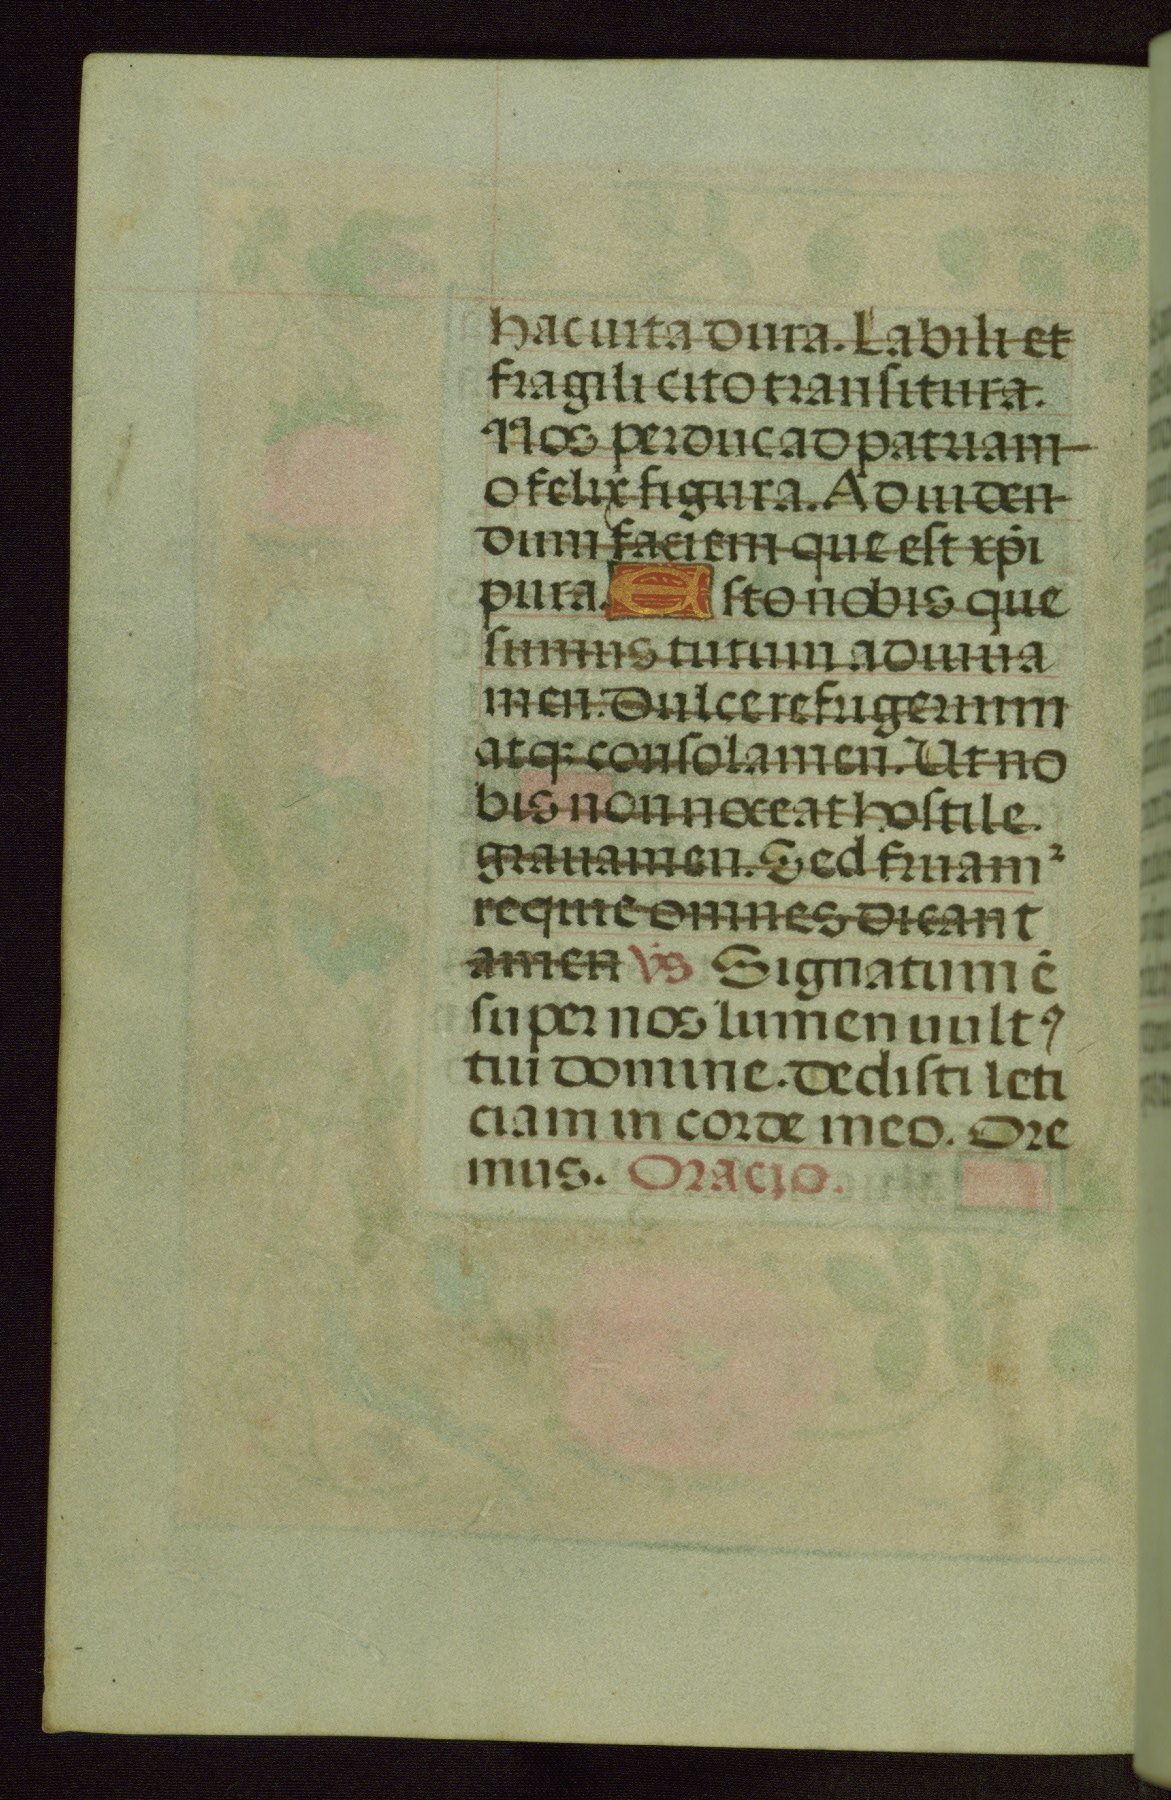 hac uita dura. Labili et
fragili cito transitura.
Nos perduc ad patriam
o felix figura. Ad uiden
dum faciem que est xp̄i
pura. Esto nobis que
sumus tutum adiuua
men. Dulce refugerium
atq; consolamen. Ut no
bis non noceat hostile
grauamen. Sed fruamᷣ
requie omnes dicant
amen Vs Signatum ē
super nos lumen uultꝰ
tui domine. dedisti leti
ciam in corde meo. Ore
mus. Oracio.